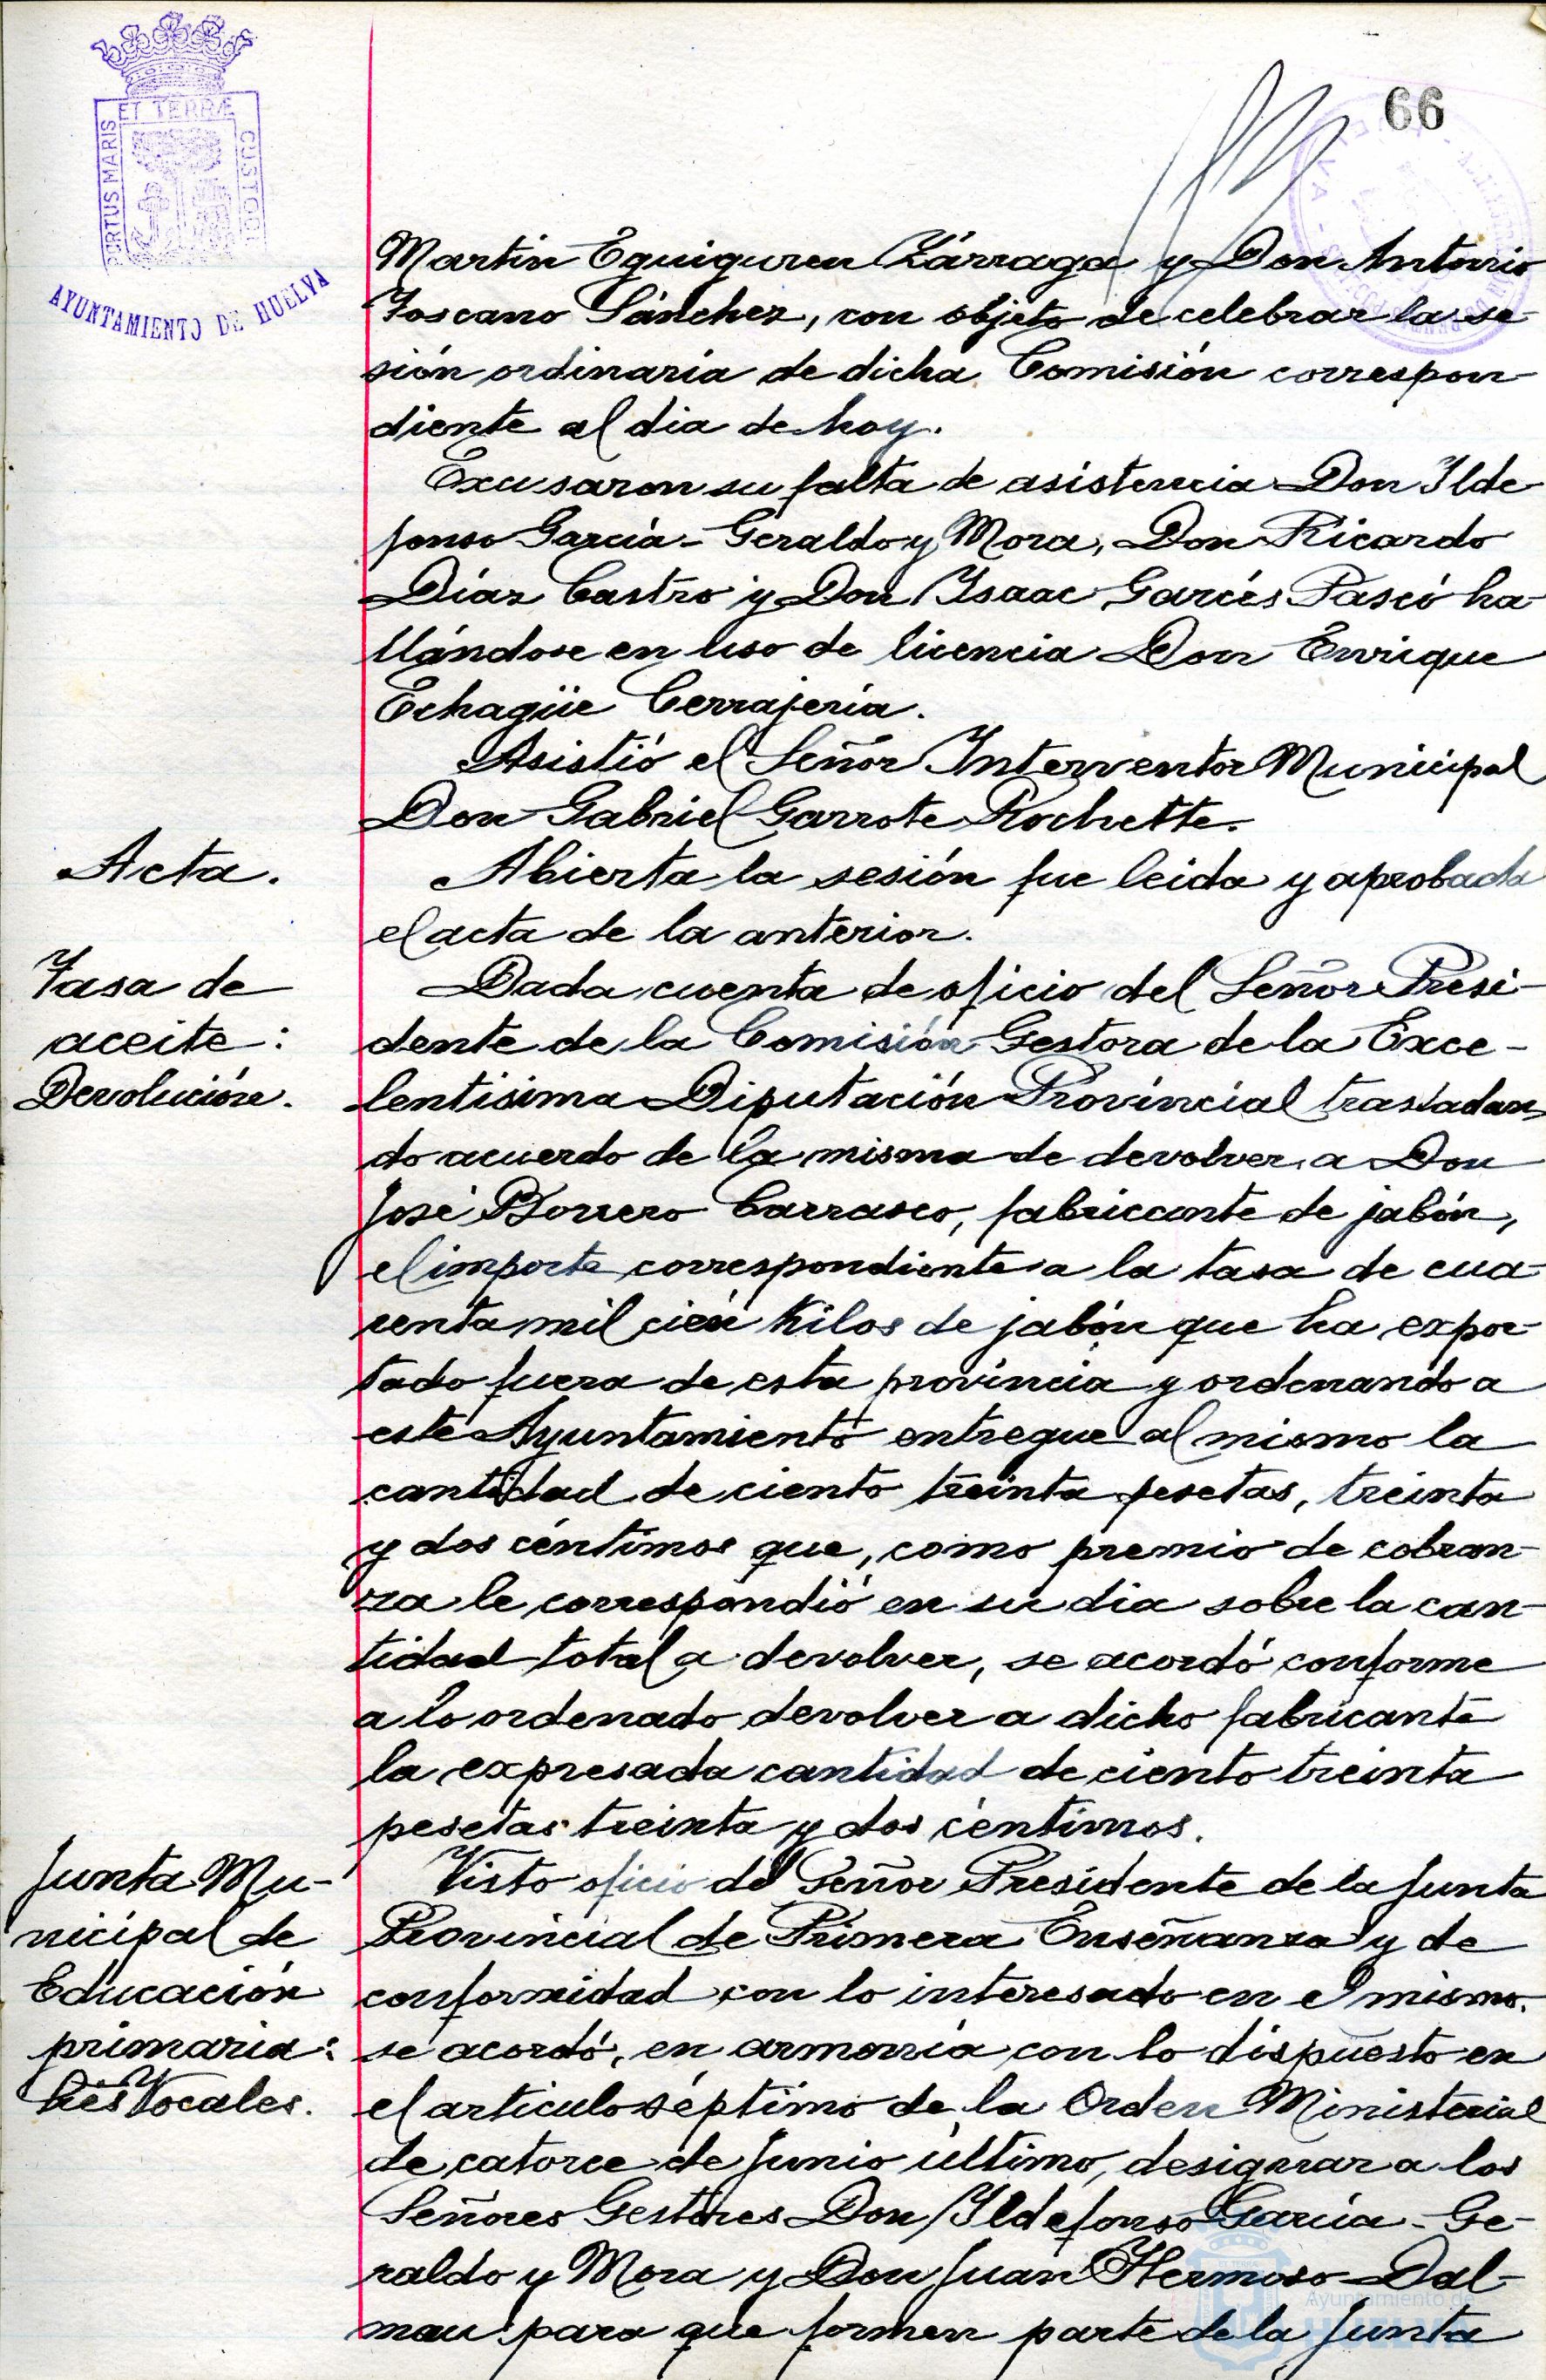 66
ET TERRÆ
PORTUS MARIS
CUSTODI
AYUNTAMIENTO DE HUELVA
Martin Eguiguren Zárraga y Don Antonio
Toscano Sánchez, con objeto de celebrar la se-
sión ordinaria de dicha Comisión correspon-
diente al dia de hoy.
Excusaron su falta de asistencia Don Ilde
fonso García-Geraldo y Mora, Don Ricardo
Díaz Castro y Don Isaac Garcés Pascó ha-
llándose en uso de licencia Don Enrique
Echagüe Cerrajería.
Asistió el Señor Interventor Municipal
Don Gabriel Garrote Rochette.
Acta.
Abierta la sesión fue leida y aprobada
el acta de la anterior.
Tasa de
aceite:
Devolución.
Dada cuenta de oficio del Señor Presi-
dente de la Comisión Gestora de la Exce-
lentísima Diputación Provincial trasladan
do acuerdo de la misma de devolver a Don
José Borrero Carrasco, fabricante de jabón,
el importe correspondiente a la tasa de cua-
renta mil cien kilos de jabón que ha expor-
tado fuera de esta provincia y ordenando a
este Ayuntamiento entregue al mismo la
cantidad de ciento treinta pesetas, treinta
y dos céntimos que, como premio de cobran-
za le correspondió en su dia sobre la can-
tidad total a devolver, se acordó conforme
a lo ordenado devolver a dicho fabricante
la expresada cantidad de ciento treinta
pesetas treinta y dos céntimos.
Junta Mu-
nicipal de
Educación
primaria:
tres Vocales.
Visto oficio del Señor Presidente de la Junta
Provincial de Primera Enseñanza y de
conformidad con lo interesado en el mismo.
se acordó, en armonía con lo dispuesto en
el articulo séptimo de la Orden Ministerial
de catorce de Junio último, designar a los
Señores Gestores Don Ildefonso García-Ge-
raldo y Mora y Don Juan Hermoso Dal-
mau para que formen parte de la Junta
Ayuntamiento de
HUELVA